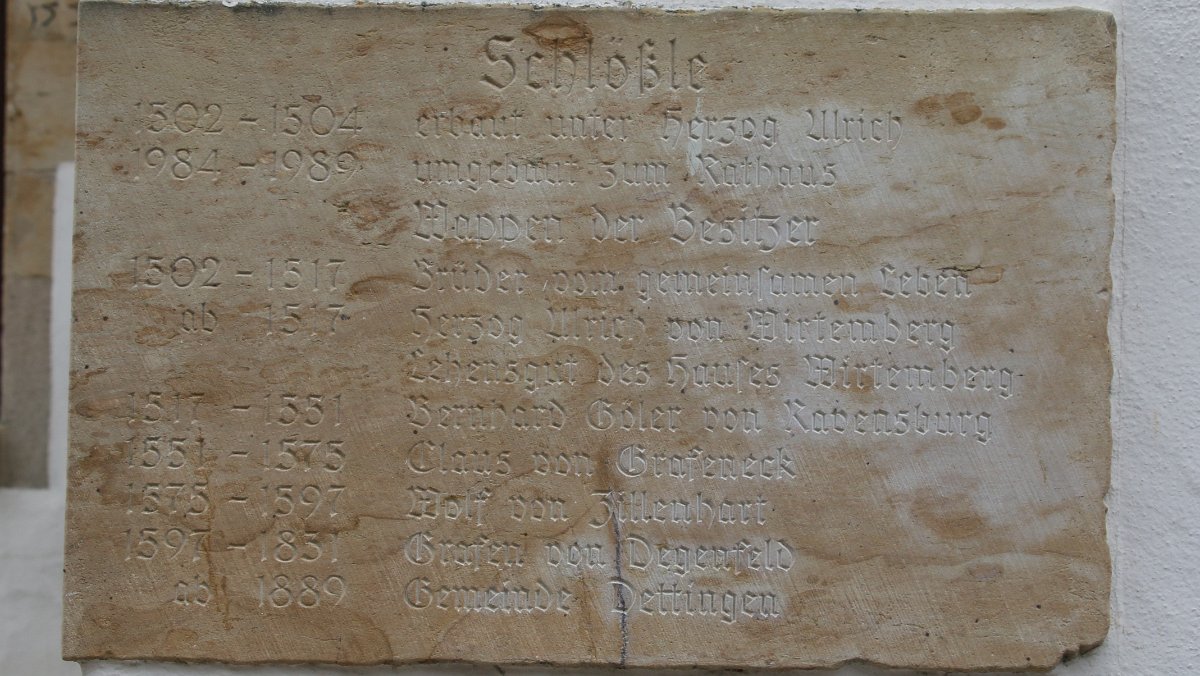 Schlößle
1502 - 1504 erbaut unter Herzog Ulrich
1984 - 1989 umgebaut zum Rathaus
Wappen der Besitzer
1502 - 1517 Brüder vom gemeinsamen Leben
ab 1517 Herzog Ulrich von Wirtemberg
Lehensgut des Hauses Wirtemberg
1517 - 1551 Bernhard Göler von Ravensburg
1551 - 1575 Claus von Grafeneck
1575 - 1597 Wolf von Zillenhart
1597 - 1851 Grafen von Degenfeld
ab 1889 Gemeinde Dettingen